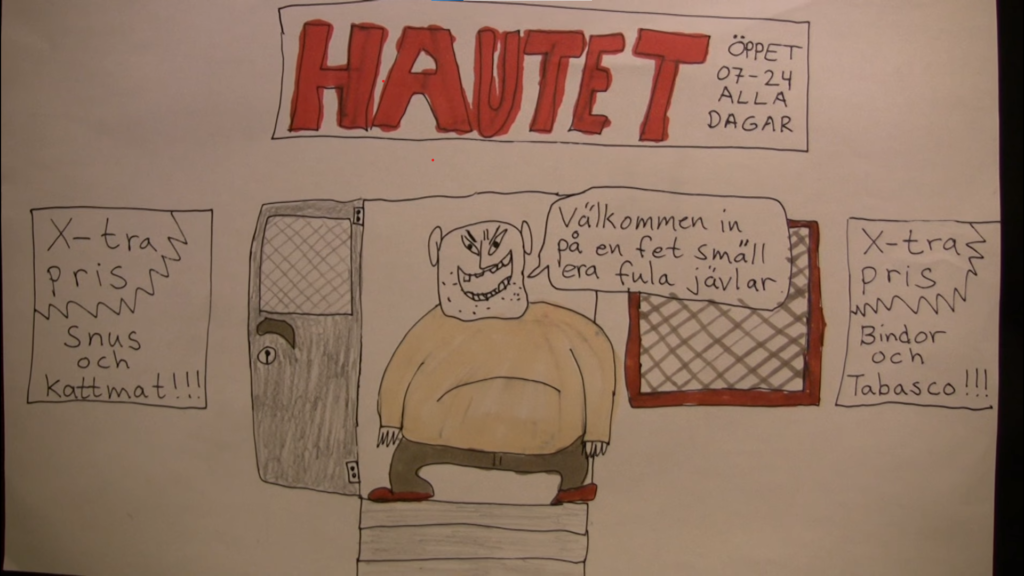 HAUTET
ÖPPET
07-24
ALLA
DAGAR
Välkommen in
på en fet smäll
era fula jävlar
X-tra
pris
Snus
och
Kattmat!!!
X-tra
pris
Bindor
och
Tabasco!!!